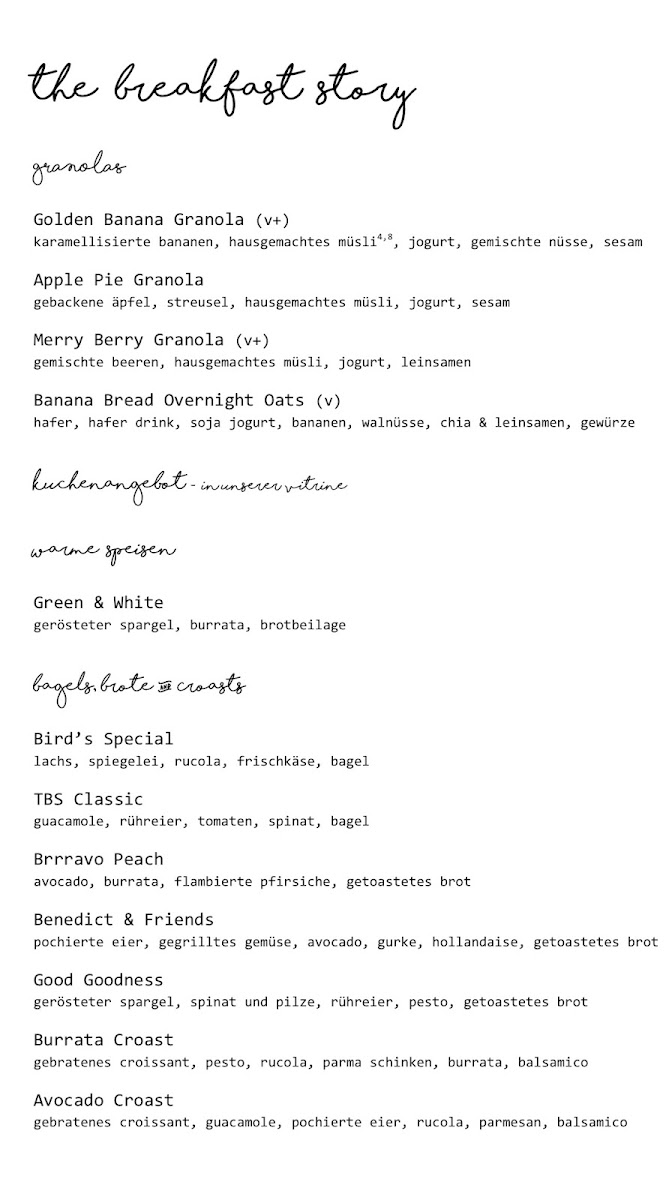 the breakfast story
granolas
Golden Banana Granola (v+)
karamellisierte bananen, hausgemachtes müsli⁴,⁸, jogurt, gemischte nüsse, sesam
Apple Pie Granola
gebackene äpfel, streusel, hausgemachtes müsli, jogurt, sesam
Merry Berry Granola (v+)
gemischte beeren, hausgemachtes müsli, jogurt, leinsamen
Banana Bread Overnight Oats (v)
hafer, hafer drink, soja jogurt, bananen, walnüsse, chia & leinsamen, gewürze
kuchenangebot - in unserer vitrine
warme speisen
Green & White
gerösteter spargel, burrata, brotbeilage
bagels, brote and croasts
Bird’s Special
lachs, spiegelei, rucola, frischkäse, bagel
TBS Classic
guacamole, rühreier, tomaten, spinat, bagel
Brrravo Peach
avocado, burrata, flambierte pfirsiche, getoastetes brot
Benedict & Friends
pochierte eier, gegrilltes gemüse, avocado, gurke, hollandaise, getoastetes brot
Good Goodness
gerösteter spargel, spinat und pilze, rühreier, pesto, getoastetes brot
Burrata Croast
gebratenes croissant, pesto, rucola, parma schinken, burrata, balsamico
Avocado Croast
gebratenes croissant, guacamole, pochierte eier, rucola, parmesan, balsamico